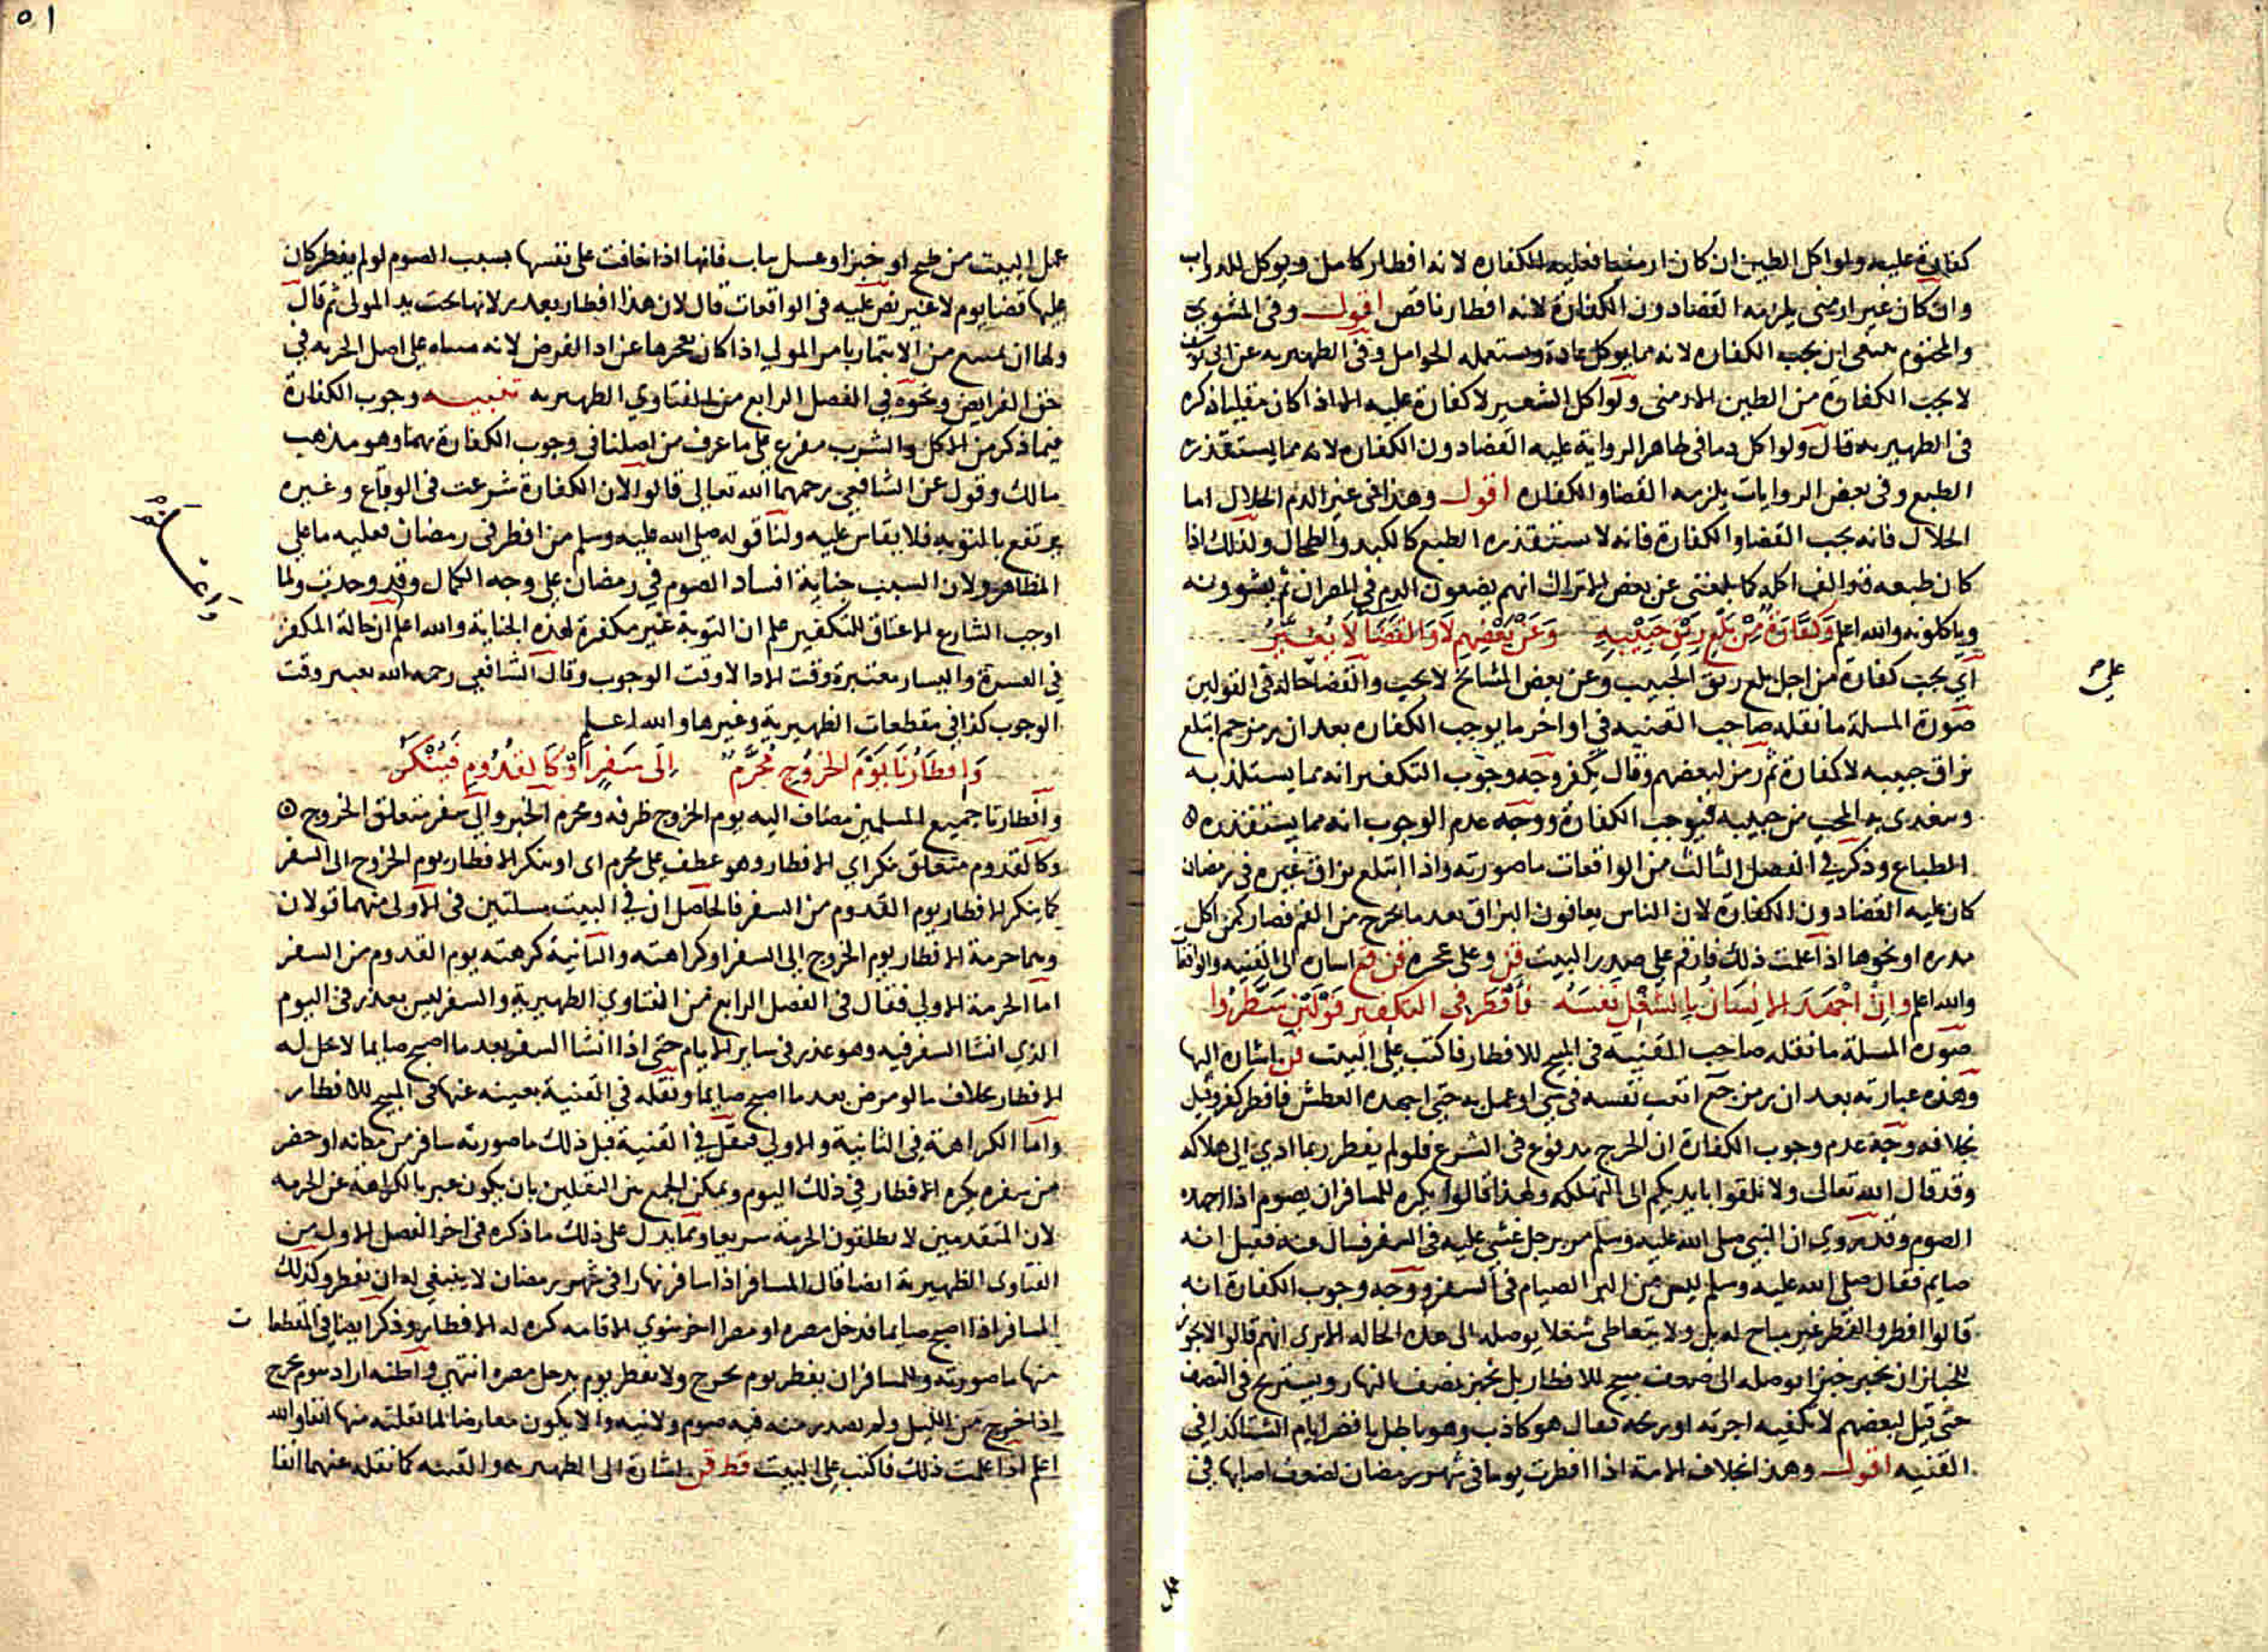 كفارة عليه ولو اكل الطين ان كان ارمنيا فعليه الكفارة لانه افطار كامل ويوكل للدواب
وان كان غير ارمني يلزمه القضا دون الكفارة لانه افطار ناقص اقول وفي المشوي
والمختوم ينبغي ان يجب الكفاره لانه مما يوكل عادة ويستعمله الحوامل وفي الظهيريه عن ابي يوسف
لا يجب الكفارة من الطين الارمني ولو اكل الشعير لا كفارة عليه الا اذا كان مقليا ذكره
في الظهيريه قال ولو اكل دما في ظاهر الرواية عليه القضا دون الكفاره لانه مما يستقذره
الطبع وفي بعض الروايات يلزمه القضا والكفاره اقول وهذا في غير الدم الحلال اما
الحلال فانه يجب القضا والكفارة فانه لا يستقذره الطبع كالكبد والطحال وكذلك اذا
كان طبعه قد الف اكله كما بلغني عن بعض الاتراك انهم يضعون الدم في المصران ثم يشوونه
وياكلونه والله اعلم وَكَفَّارَةٌ مِنْ بَلْعِ رِيْقِ حَبِيْبِهِ وَعَنْ بَعْضِهِم لَا وَالقَضَا لَا يُغَيَّرُ
اي يجب كفارة من اجل بلع ريق الحبيب وعن بعض المشايخ لا يجب والقضا حاله في القولين
صورة المسلة ما نقله صاحب القنيه في اواخر ما يوجب الكفاره بعد ان رمز حم ابتلع
بزاق حبيبه لا كفارة ثم رمز لبعضهم وقال يكفر وجه وجوب التكفير انه مما يستلذ به
ويتغدى به المحب من حبيبه فيوجب الكفارة ووجه عدم الوجوب انه مما يستقذره
الطباع وذكر في الفصل الثالث من الواقعات ما صورته واذا ابتلع بزاق غيره في رمضان
كان عليه القضا دون الكفارة لان الناس يعافون البزاق بعد ما يخرج من الفم فصار كمن اكل
مدره او نحوها اذا علمت ذلك فارقم على صدر البيت قن وعلى عجزه قن قع اشاره الى القنيه والواقعات
والله اعلم وَاِنْ اَجْهَدَ الاِنسَانُ بِالشُّغْلِ نَفسَهُ فَأَفْطَرَ فِي التكفير قَوْلَيْنِ سَطَّرُوا
صورة المسلة ما نقله صاحب القنية في المبيح للافطار فاكتب على البيت قن اشاره اليها
وهذه عبارته بعد ان رمز جع اتعب نفسه في شي او عمل به حتى اجهده العطش فافطر كفر وقيل
بخلافه وجه عدم وجوب الكفارة ان الحرج مدفوع في الشرع فلو لم يفطر ربما ادي الى هلاكه
وقد قال الله تعالى ولا تلقوا بايديكم الى التهلكه ولهذا قالوا يكره للمسافر ان يصوم اذا اجهده
الصوم وقد روي ان النبي صلى الله عليه وسلم مر برجل غشي عليه في السفر فسال عنه فقيل انه
صايم فقال صلى الله عليه وسلم ليس من البر الصيام في السفر ووجه وجوب الكفارة انه
قالوا افطر والفطر غير مباح له بل ولا يتعاطى شغلا يوصله الى هذه الحاله الا يرى انهم قالوا لا يجوز
للخباز ان يخبز خبزا يوصله الى ضعف مبيح للافطار بل يخبز نصف النهار ويستريح في النصف
حتى قيل لبعضهم لا تكفيه اجرته او ربحه فقال هو كاذب وهو باطل باقصر ايام الشتا كذا في
القنيه اقول وهذا بخلاف الامة اذا افطرت يوما في شهر رمضان لضعف اصابها في
على
عمل
٥١
عمل البيت من طبخ او خبز او غسل ثياب فانها اذا خافت على نفسها بسبب الصوم لو لم يفطر كان
عليها قضا يوم لا غير نص عليه في الواقعات قال لان هذا افطار بعذر لانها تحت يد المولى ثم قال
ولها ان تمتنع من الايتمار بامر المولي اذا كان يعجزها عن ادا الفرض لانه مبقاه على اصل الحريه في
حق الفرايض ونحوه في الفصل الرابع من الفتاوي الظهيريه تنبيه وجوب الكفارة
فيما ذكر من الاكل والشرب مفرع على ما عرف من اصلنا في وجوب الكفارة بهما وهو مذهب
مالك وقول عن الشافعي رحمهما الله تعالى قالوا لان الكفارة شرعت في الوقاع وغيره
يرتفع بالتوبه فلا يقاس عليه ولنا قوله صلى الله عليه وسلم من افطر في رمضان فعليه ما على
المظاهر ولان السبب جناية افساد الصوم في رمضان على وجه الكمال وقد وجدت ولما
اوجب الشارع الاعتاق للتكفير علم ان التوبة غير مكفرة لهذه الجناية والله اعلم ان حالة المكفر
في العسرة واليسار معتبرة وقت الادا لا وقت الوجوب وقال الشافعي رحمه الله يعتبر وقت
الوجوب كذا في مقطعات الظهيرية وغيرها والله اعلم
وَاِفطَارُنَا يَوْمَ الخُرُوْجِ مُحَرَّمٌ اِلَى سَفَرٍ اَوْ كَالقُدُومِ فَيُنْكَرُ
وافطارنا جميع المسلمين مضاف اليه يوم الخروج ظرفه ومحرم الخبر والى سفر متعلق الخروج
وكالقدوم متعلق ينكر اي الافطار وهو عطف على محرم اى او ينكر الافطار يوم الخروج الى السفر
كما ينكر الافطار يوم القدوم من السفر فالحاصل ان في البيت مسلتين في الاولى منهما قولان
وهما حرمة الافطار يوم الخروج الى السفر او كراهته والثانية كرهته يوم القدوم من السفر
اما الحرمة الاولي فقال في الفصل الرابع من الفتاوي الظهيرية والسفر ليس بعذر في اليوم
الذي انشا السفر فيه وهو عذر في ساير الايام حتى اذا انشا السفر بعد ما اصبح صايما لا يحل له
الافطار بخلاف ما لو مرض بعد ما اصبح صايما ونقله في القنية بعينه عنها في المبيح للافطار
واما الكراهة في الثانية والاولي فنقل في القنية قبل ذلك ما صورته سافر من مكانه او حضر
من سفره يكره الافطار في ذلك اليوم ويمكن الجمع بين النقلين بان يكون عبر بالكراهة عن الحرمه
لان المتقدمين لا يطلقون الحرمة سريعا ومما يدل على ذلك ما ذكره في اخر الفصل الاول من
الفتاوى الظهيرية ايضا قال المسافر اذا سافر نهارا في شهر رمضان لا ينبغي له ان يفطر وكذلك
المسافر اذا اصبح صايما فدخل مصره او مصرا اخر ينوي الاقامه كره له الافطار وذكر ايضا في المقطعات
منها ما صورته وللمسافر ان يفطر يوم يخرج ولا يفطر يوم يدخل مصره انتهي واظنه اراد بيوم يخرج
اذا خرج من الليل ولم يصدر منه فيه صوم ولا نيه والا يكون معارضا لما نقلته منها انفا والله
اعلم اذا علمت ذلك فاكتب على البيت قظ قن اشارة الى الظهيريه والقنيه كما نقله عنهما انفا